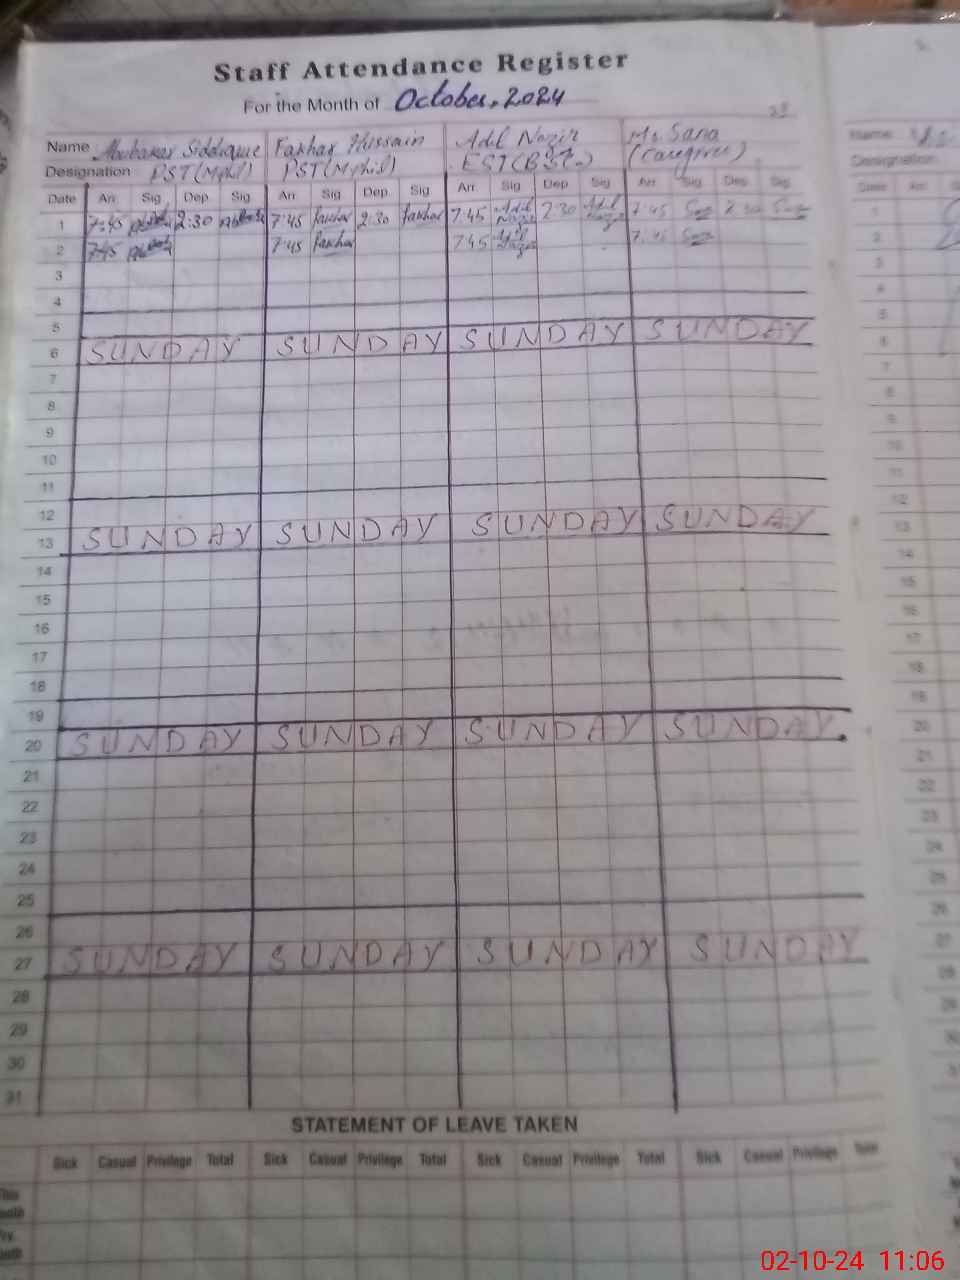 Staff Attendance Register
For the Month of October, 2024
Name Abubakar Siddique Fakhar Hussain Adil Nazir Ms Sana
Designation PST(Mphil) PST(Mphil) EST(B.Sc.) (Caregiver)
Date Arr Sig Dep Sig Arr Sig Dep Sig Arr Sig Dep Sig Arr Sig Dep Sig
1 7:45 2:30 7:45 Fakhar 2:30 Fakhar 7:45 Adil Nazir 2:30 Adil Nazir 7:45 Sana 2:30 Sana
2 7:45 7:45 Fakhar 7:45 Adil Nazir 7:45 Sana
3
4
5
6 SUNDAY SUNDAY SUNDAY SUNDAY
7
8
9
10
11
12
13 SUNDAY SUNDAY SUNDAY SUNDAY
14
15
16
17
18
19
20 SUNDAY SUNDAY SUNDAY SUNDAY
21
22
23
24
25
26
27 SUNDAY SUNDAY SUNDAY SUNDAY
28
29
30
31
STATEMENT OF LEAVE TAKEN
Sick Casual Privilege Total Sick Casual Privilege Total Sick Casual Privilege Total Sick Casual Privilege Total
Name
Designation
02-10-24 11:06